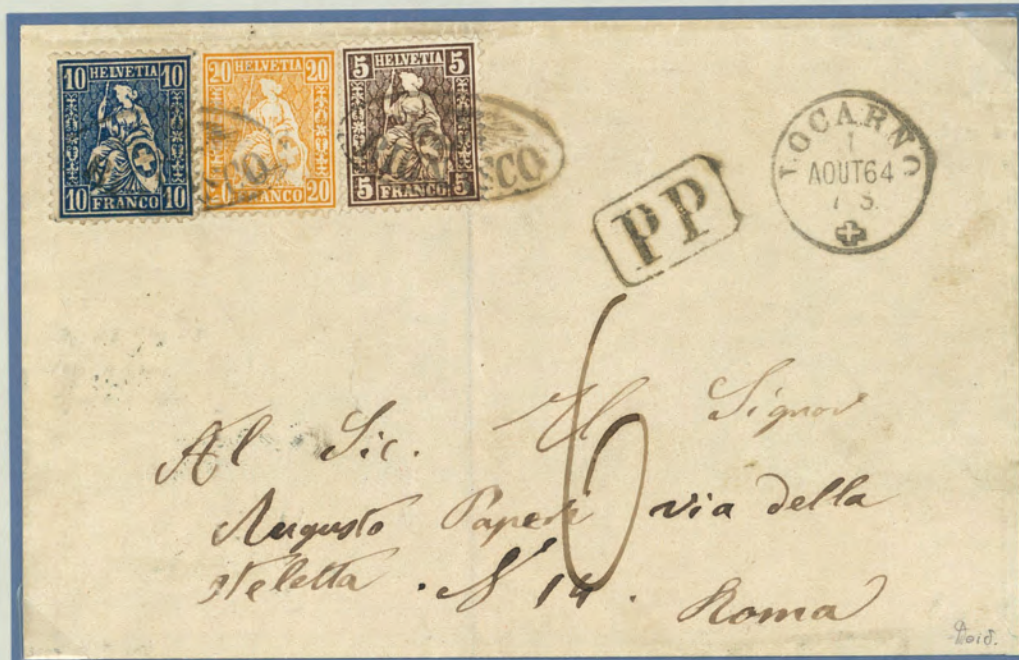 10 HELVETIA 10
10 FRANCO 10
20 HELVETIA 20
FRANCO 20
5 HELVETIA 5
5 FRANCO 5
PP
LOCARNO
1
AOUT 64
7 S.
6
Al Sic. Il Signor
Augusto via della
Steletta . N 14 .
Roma